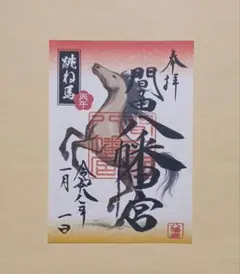 奉拝
間々田八幡宮
跳ね馬
丙午
令和八年
一月一日